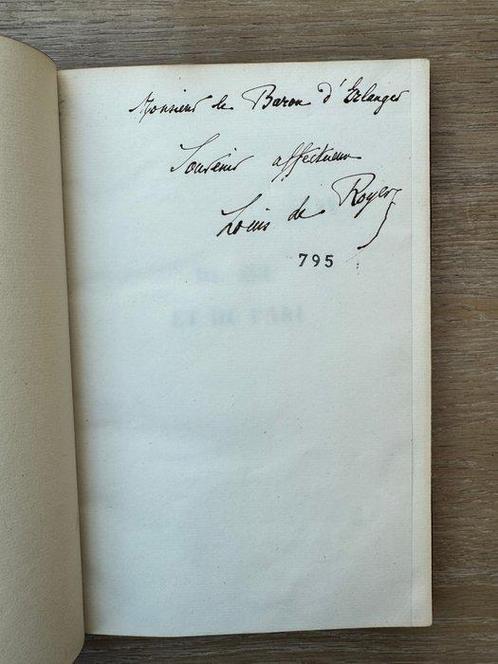 Monsieur le Baron d'Erlanger
Souvenir affectueux
Louis de Royer
795